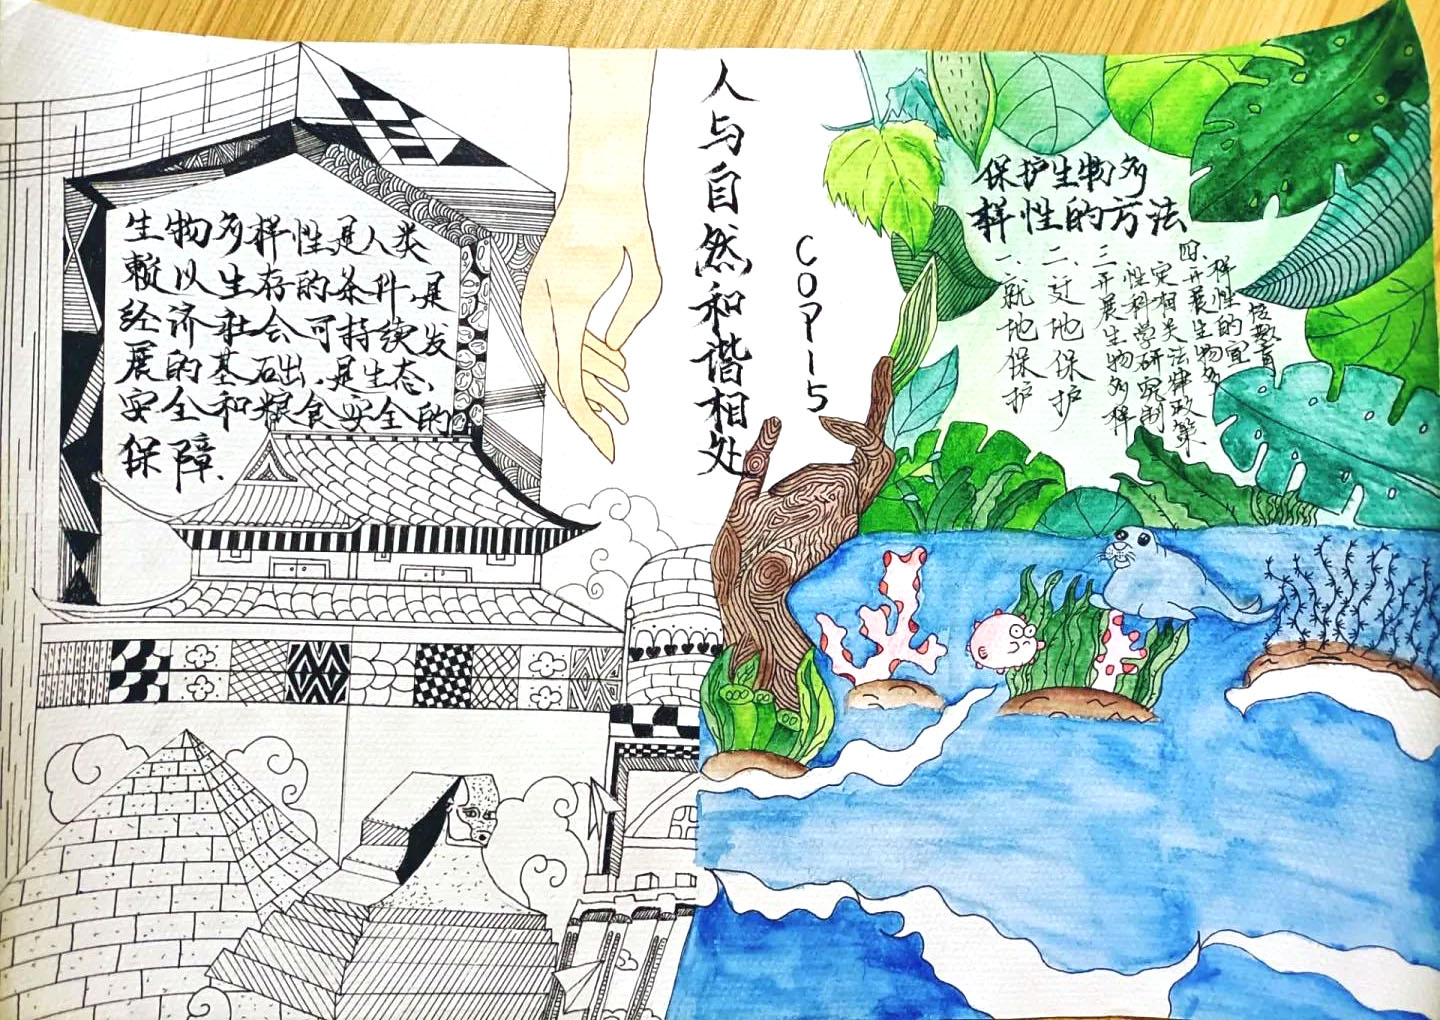 生物多样性是人类
赖以生存的条件,是
经济社会可持续发
展的基础,是生态
安全和粮食安全的
保障.
人与自然和谐相处
COP15
保护生物多
样性的方法
一、就地保护
二、迁地保护
三、开展生物多样
性科学研究制
定相关法律政策
四、开展生物多
样性的宣
传教育